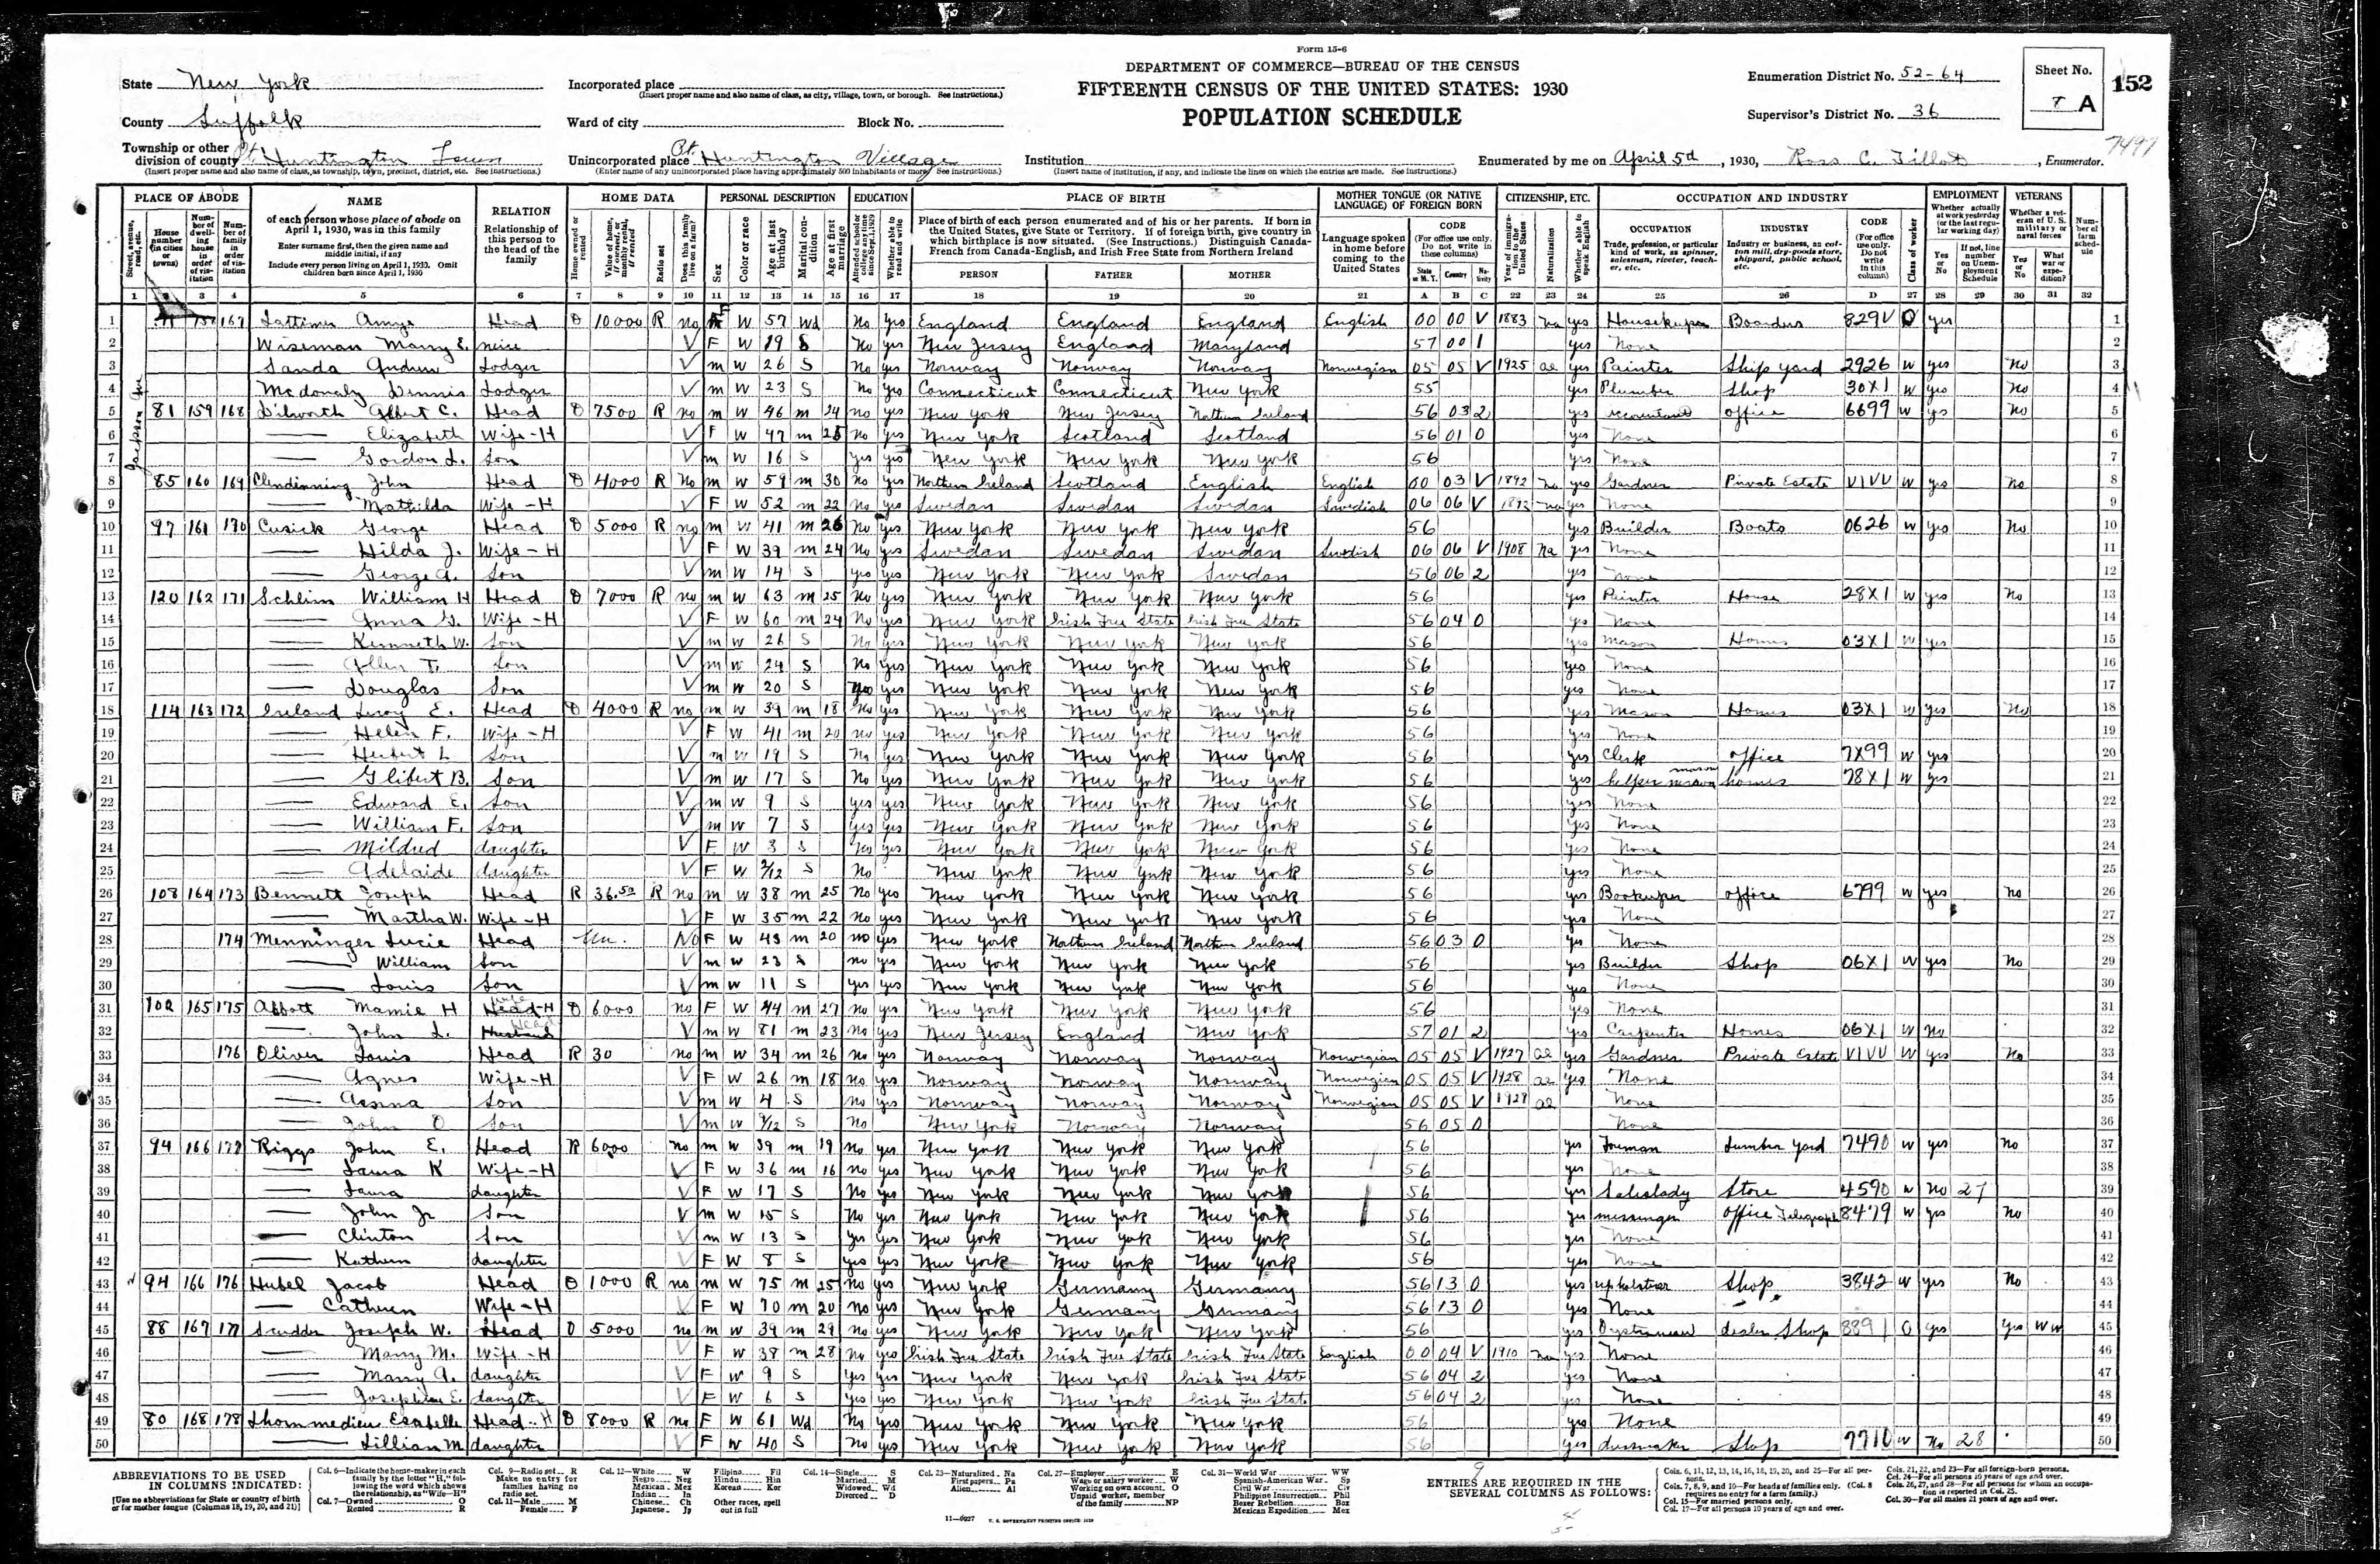 Form 15-6
DEPARTMENT OF COMMERCE—BUREAU OF THE CENSUS
FIFTEENTH CENSUS OF THE UNITED STATES: 1930
POPULATION SCHEDULE
State New York
County Suffolk
Township or other division of county Pt. Huntington Town
(Insert proper name and also name of class, as township, town, precinct, district, etc. See instructions.)
Incorporated place
(Insert proper name and also name of class, as city, village, town, or borough. See instructions.)
Ward of city Block No.
Unincorporated place Pt. Huntington Village
(Enter name of any unincorporated place having approximately 500 inhabitants or more. See instructions.)
Institution
(Insert name of institution, if any, and indicate the lines on which the entries are made. See instructions.)
Enumeration District No. 52-64
Supervisor's District No. 36
Sheet No.
7 A
152
7497
Enumerated by me on April 5d, 1930, Ross C. , Enumerator.
PLACE OF ABODE NAME RELATION HOME DATA PERSONAL DESCRIPTION EDUCATION PLACE OF BIRTH MOTHER TONGUE (OR NATIVE LANGUAGE) OF FOREIGN BORN CITIZENSHIP, ETC. OCCUPATION AND INDUSTRY EMPLOYMENT VETERANS
1 2 3 4 5 6 7 8 9 10 11 12 13 14 15 16 17 18 19 20 21 A B C 22 23 24 25 26 D 27 28 29 30 31 32
1 167 Head O 10000 R no F W 57 Wd No yes England England England English 00 00 V 1883 na yes Housekeeper Boarders 829V O yes 1
2 Wiseman Mary E. neice V F W 19 S No yes New Jersey England Maryland 57 00 1 yes None 2
3 Sanda Andrew Lodger V m W 26 S No yes Norway Norway Norway Norwegian 05 05 V 1925 al yes Painter Ship yard 2926 W yes No 3
4 Dennis Lodger V m W 23 S No yes Connecticut Connecticut New York 55 yes Plumber Shop 30X1 W yes No 4
5 81 159 168 Dilworth Albert C. Head O 7500 R no m W 46 m 24 no yes New York New Jersey Northern Ireland 56 03 2 yes accountant office 6699 W yes No 5
6 Elizabeth Wife-H V F W 47 m 25 No yes New York Scotland Scotland 56 01 0 yes None 6
7 Gordon L. Son V m W 16 S yes yes New York New York New York 56 yes None 7
8 85 160 169 Clendinning John Head O 4000 R No m W 59 m 30 No yes Northern Ireland Scotland English English 00 03 V 1892 na yes Gardner Private Estate VIVV W yes No 8
9 Mathilda Wife-H V F W 52 m 22 No yes Swedan Swedan Swedan Swedish 06 06 V 1892 na yes None 9
10 97 161 170 Cusick George Head O 5000 R no m W 41 m 26 No yes New York New York New York 56 yes Builder Boats 0626 W yes No 10
11 Hilda J. Wife-H V F W 39 m 24 No yes Swedan Swedan Swedan Swedish 06 06 V 1908 Na yes None 11
12 George A. Son V m W 14 S yes yes New York New York Swedan 56 06 2 yes None 12
13 120 162 171 Schlim William H Head O 7000 R no m W 63 m 25 No yes New York New York New York 56 yes Painter House 28X1 W yes No 13
14 Anna G. Wife-H V F W 60 m 24 No yes New York Irish Free State Irish Free State 56 04 0 yes None 14
15 Kenneth W. Son V m W 26 S No yes New York New York New York 56 yes Mason Homes 03X1 W yes 15
16 Allen T. Son V m W 24 S No yes New York New York New York 56 yes None 16
17 Douglas Son V m W 20 S yes New York New York New York 56 yes None 17
18 114 163 172 Ireland Leroy E. Head O 4000 R no m W 39 m 18 No yes New York New York New York 56 yes Mason Homes 03X1 W yes No 18
19 Helen F. Wife-H V F W 41 m 20 no yes New York New York New York 56 yes None 19
20 Herbert L Son V m W 19 S No yes New York New York New York 56 yes Clerk office 7X99 W yes 20
21 Glibert B. Son V m W 17 S No yes New York New York New York 56 yes helper mason homes 78X1 W yes 21
22 Edward E. Son V m W 9 S yes yes New York New York New York 56 yes None 22
23 William F. Son V m W 7 S yes yes New York New York New York 56 yes None 23
24 Mildred daughter V F W 3 S yes New York New York New York 56 yes None 24
25 Adelaide daughter V F W 2/12 S No New York New York New York 56 yes None 25
26 108 164 173 Bennett Joseph Head R 36.50 R no m W 38 m 25 No yes New York New York New York 56 yes Bookeeper office 6799 W yes no 26
27 Martha W. Wife-H V F W 35 m 22 no yes New York New York New York 56 yes None 27
28 174 Menninger Lucie Head Un. No F W 43 m 20 no yes New York Northern Ireland Northern Ireland 56 03 0 yes None 28
29 William Son V m W 23 S no yes New York New York New York 56 yes Builder Shop 06X1 W yes No 29
30 Louis Son V m W 11 S yes yes New York New York New York 56 yes None 30
31 102 165 175 Abbott Mamie H Head-H wife O 6000 no F W 44 m 27 no yes New York New York New York 56 yes None 31
32 John L. Husband Head V m W 81 m 23 No yes New Jersey England New York 57 01 2 yes Carpenter Homes 06X1 W No 32
33 176 Oliver Louis Head R 30 no m W 34 m 26 no yes Norway Norway Norway Norwegian 05 05 V 1927 al yes Gardner Private Estate VIVV W yes No 33
34 Agnes Wife-H V F W 26 m 18 no yes Norway Norway Norway Norwegian 05 05 V 1928 al yes None 34
35 Son V m W 4 S No yes Norway Norway Norway Norwegian 05 05 V 1928 al None 35
36 John O Son V m W S No New York Norway Norway 56 05 0 None 36
37 94 166 177 Riggs John E. Head R 6000 no m W 39 m 19 no yes New York New York New York 56 yes Foreman Lumber Yard 7490 W yes no 37
38 Laura K Wife-H V F W 36 m 16 no yes New York New York New York 56 yes None 38
39 Laura daughter V F W 17 S No yes New York New York New York 56 yes Saleslady Store 4590 W No 27 39
40 John Jr Son V m W 15 S No yes New York New York New York 56 yes messenger office Telegraph 8479 W yes no 40
41 Clinton Son V m W 13 S yes yes New York New York New York 56 yes None 41
42 Kathern daughter V F W 8 S yes yes New York New York New York 56 yes None 42
43 94 166 176 Hubel Jacob Head O 1000 R no m W 75 m 25 No yes New York Germany Germany 56 13 0 yes upholstrer Shop 3842 W yes No 43
44 Cathern Wife-H V F W 70 m 20 no yes New York Germany Germany 56 13 0 yes None 44
45 88 167 177 Scudder Joseph W. Head O 5000 no m W 39 m 29 no yes New York New York New York 56 yes Oysterman dealer Shop 8891 O yes Yes WW 45
46 Mary M. Wife-H V F W 38 m 28 no yes Irish Free State Irish Free State Irish Free State English 00 04 V 1910 na yes None 46
47 Mary A. daughter V F W 9 S yes yes New York New York Irish Free State 56 04 2 yes None 47
48 Josephine E. daughter V F W 6 S yes yes New York New York Irish Free State 56 04 2 yes None 48
49 80 168 178 Lhommedieu Esabelle Head-H O 8000 R no F W 61 Wd No yes New York New York New York 56 yes None 49
50 Lillian M daughter V F W 40 S No yes New York New York New York 56 yes dressmaker Shop 7710 W No 28 50
ABBREVIATIONS TO BE USED IN COLUMNS INDICATED:
[Use no abbreviations for State or country of birth or for mother tongue (Columns 18, 19, 20, and 21)]
Col. 6—Indicate the home-maker in each family by the letter "H," following the word which shows the relationship, as "Wife—H"
Col. 7—Owned O
Rented R
Col. 9—Radio set R
Make no entry for families having no radio set.
Col. 11—Male M
Female F
Col. 12—White W
Negro Neg
Mexican Mex
Indian In
Chinese Ch
Japanese Jp
Filipino Fil
Hindu Hin
Korean Kor
Other races, spell out in full
Col. 14—Single S
Married M
Widowed Wd
Divorced D
Col. 23—Naturalized Na
First papers Pa
Alien Al
Col. 27—Employer E
Wage or salary worker W
Working on own account O
Unpaid worker, member of the family NP
Col. 31—World War WW
Spanish-American War Sp
Civil War Civ
Philippine Insurrection Phil
Boxer Rebellion Box
Mexican Expedition Mex
ENTRIES ARE REQUIRED IN THE SEVERAL COLUMNS AS FOLLOWS:
Cols. 6, 11, 12, 13, 14, 16, 18, 19, 20, and 25—For all persons.
Cols. 7, 8, 9, and 10—For heads of families only. (Col. 8 requires no entry for a farm family.)
Col. 15—For married persons only.
Col. 17—For all persons 10 years of age and over.
Cols. 21, 22, and 23—For all foreign-born persons.
Col. 24—For all persons 10 years of age and over.
Cols. 26, 27, and 28—For all persons for whom an occupation is reported in Col. 25.
Col. 30—For all males 21 years of age and over.
11—6927 U. S. GOVERNMENT PRINTING OFFICE: 1929